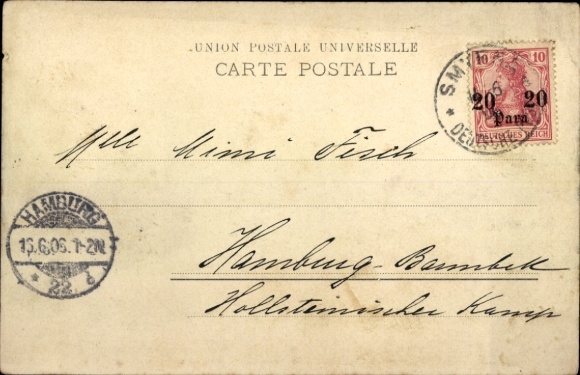 UNION POSTALE UNIVERSELLE
CARTE POSTALE
10 10
20 20
Para
DEUTSCHES REICH
Mlle Mimi Fisch
HAMBURG
16.6.06. 1-2N.
* 22 d
Hamburg-Barmbek
Hollsteinischer Kamp